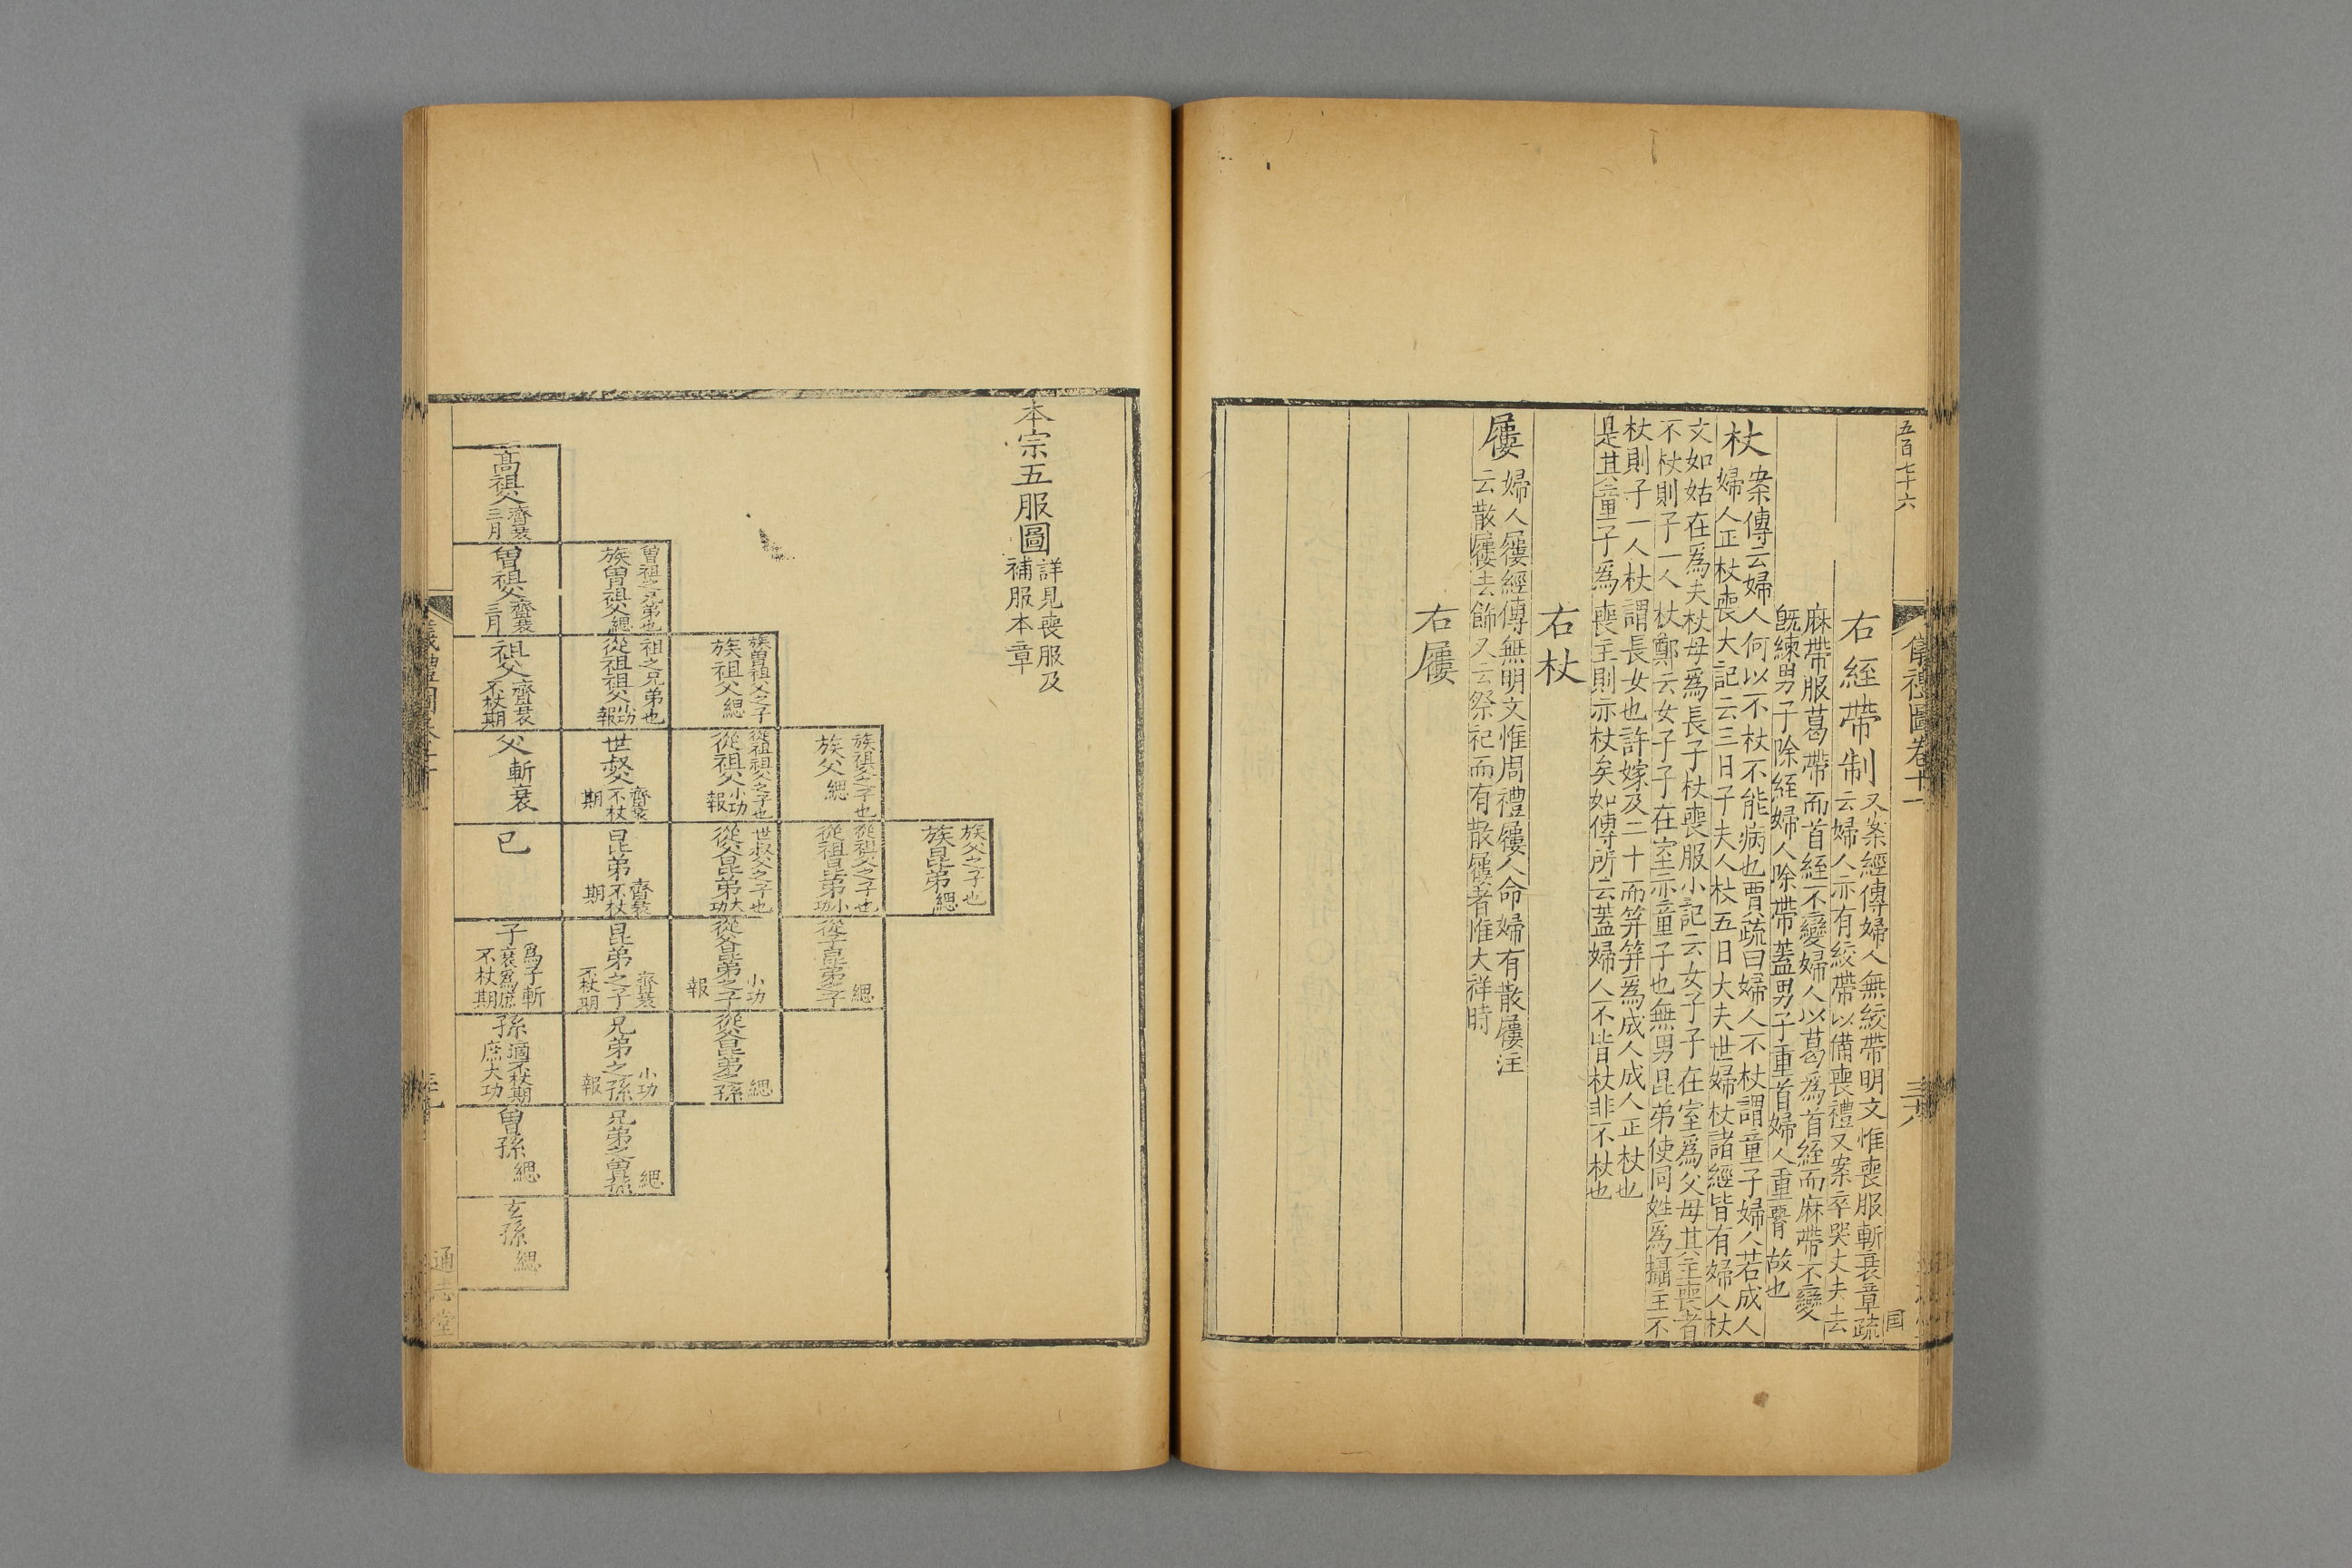 五百七十六
儀禮圖卷十一
三十八
右絰帶制
又案經傳婦人無絞帶明文惟喪服斬衰章疏
云婦人亦有絞帶以備喪禮又案卒哭丈夫去
麻帶服葛帶而首絰不變婦人以葛爲首絰而麻帶不變
旣練男子除絰婦人除帶蓋男子重首婦人重要故也
杖
案傳云婦人何以不杖不能病也賈疏曰婦人不杖謂童子婦人若成人
婦人正杖喪大記云三日子夫人杖五日大夫世婦杖諸經皆有婦人杖
文如姑在爲夫杖母爲長子杖喪服小記云女子子在室爲父母其主喪者
不杖則子一人杖鄭云女子子在室亦童子也無男昆弟使同姓爲攝主不
杖則子一人杖謂長女也許嫁及二十而笄笄爲成人成人正杖也
是其童子爲喪主則亦杖矣如傳所云蓋婦人不皆杖非不杖也
右杖
屨
婦人屨經傳無明文惟周禮屨人命婦有散屨注
云散屨去飾又云祭祀而有散屨者惟大祥時
右屨
本宗五服圖
詳見喪服及
補服本章
族父之子也
族昆弟緦
族祖父之子也
族父緦
從祖父之子也
從祖昆弟小功
緦
族曾祖父之子
族祖父緦
從祖祖父之子也
從祖父小功報
世叔父之子也
從父昆弟大功
從父昆弟之子小功報
從父昆弟之孫緦
曾祖之兄弟也
族曾祖父緦
祖之兄弟也
從祖祖父小功報
世叔父齊衰不杖期
昆弟齊衰不杖期
昆弟之子齊衰不杖期
兄弟之孫小功報
兄弟之曾孫緦
高祖父齊衰三月
曾祖父齊衰三月
祖父齊衰不杖期
父斬衰
已
子爲子斬衰爲庶不杖期
孫適不杖期庶大功
曾孫緦
玄孫緦
通志堂